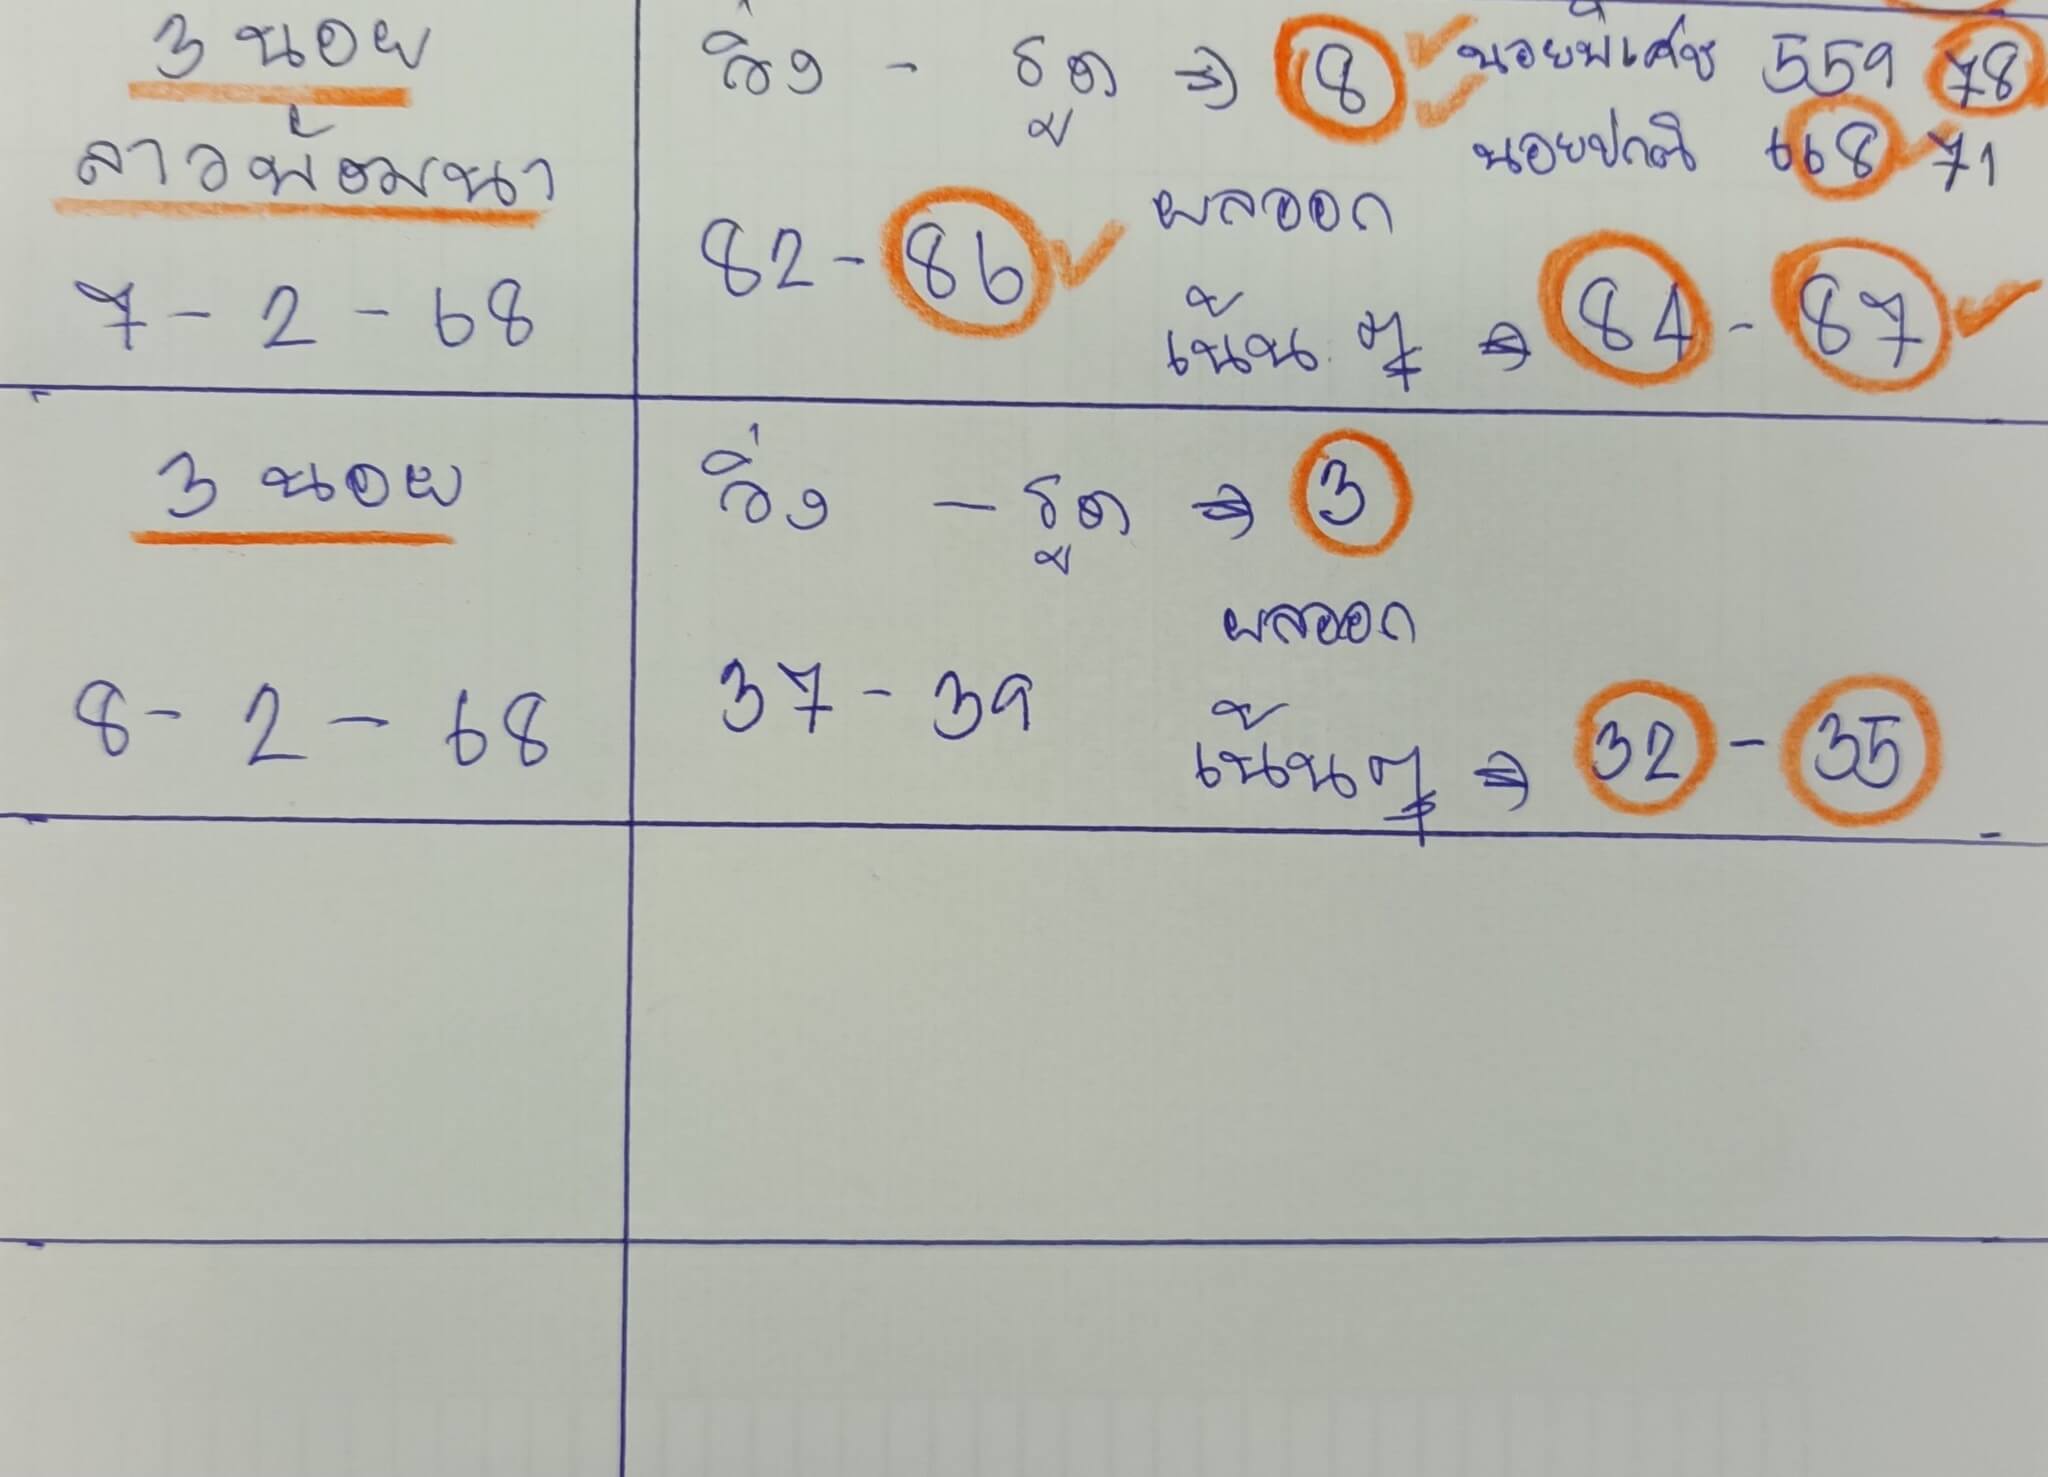 3 นอย
ลาวพัฒนา
7 - 2 - 68
วิ่ง - รูด ⇒ 8 ✓ นอยพิเศษ 559 78
✓ นอยปกติ 668 ✓ 71
82 - 86 ✓ ผลออก
เน้น ๆ ⇒ 84 - 87 ✓
3 นอย
8 - 2 - 68
วิ่ง - รูด ⇒ 3
ผลออก
37 - 39
เน้นๆ ⇒ 32 - 35